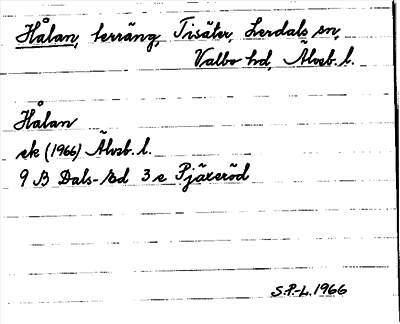 Hålan, terräng, Tisäter, Lerdals sn,
Valbo hd, Älvsb. l.
Hålan
ek (1966) Älvsb. l.
9 B Dals-Ed 3 e Pjäxeröd
S.P.-L. 1966